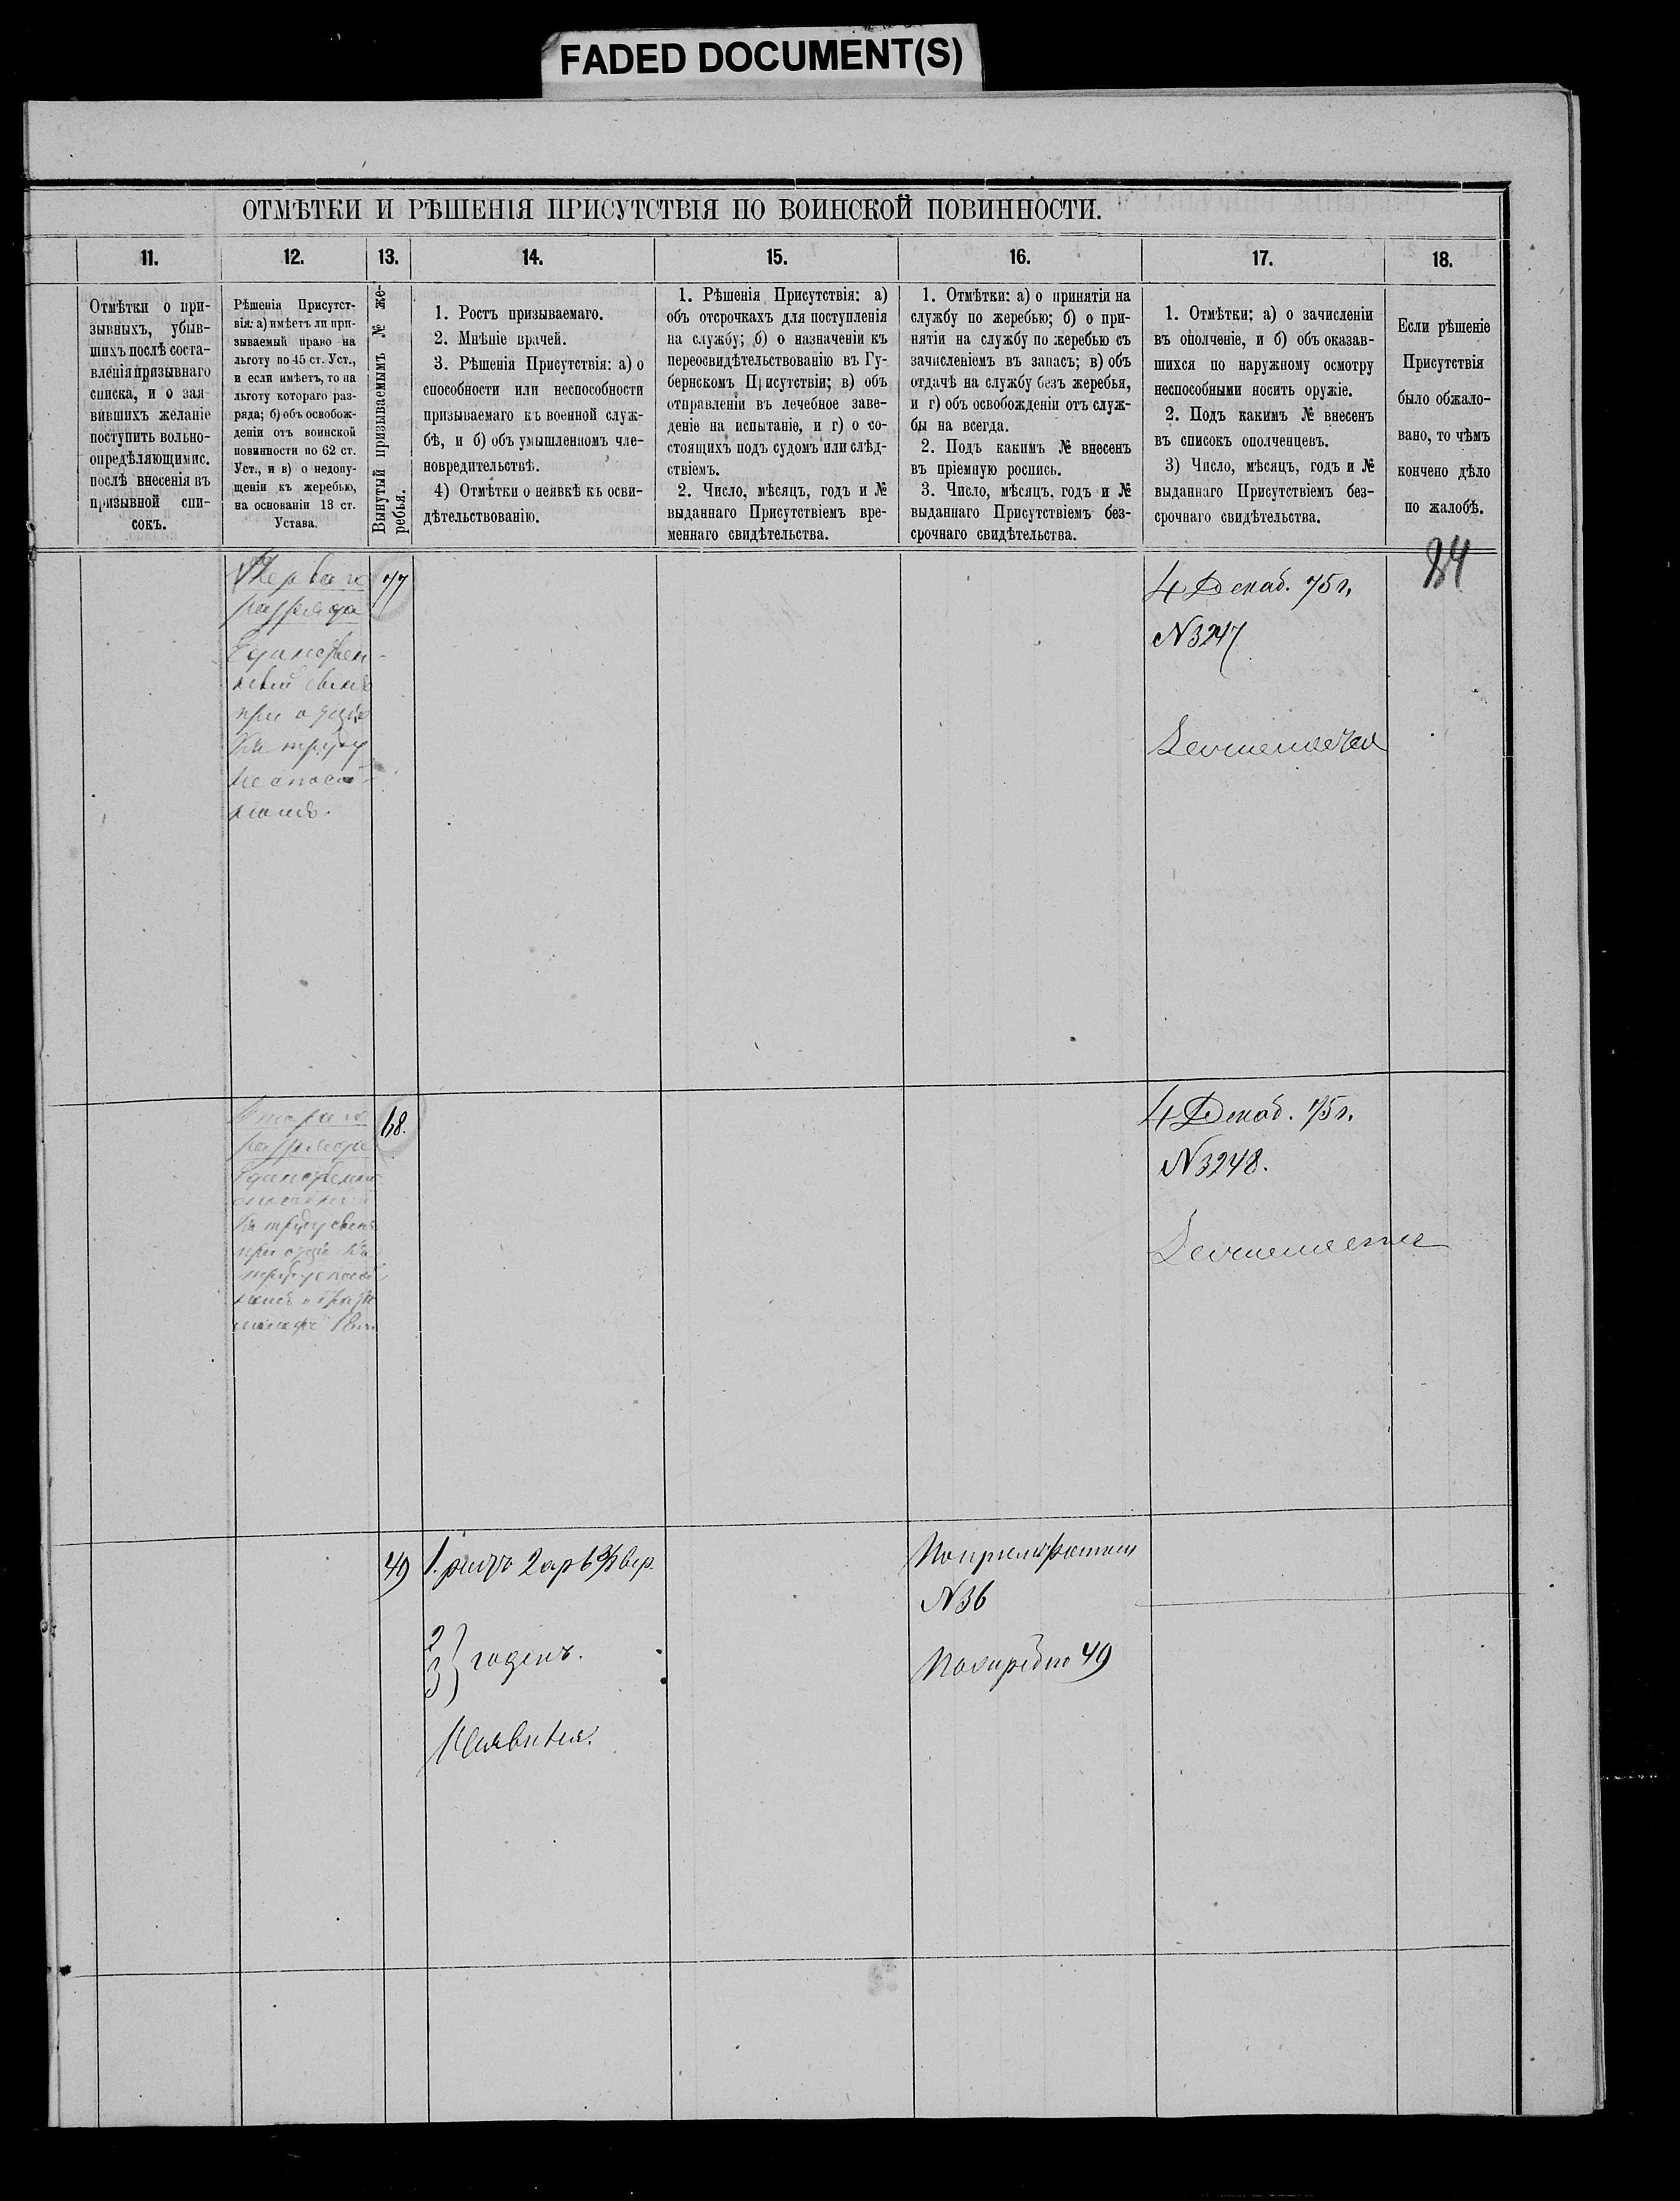 FADED DOCUMENT(S)
ОТМѢТКИ И РѢШЕНІЯ ПРИСУТСТВІЯ ПО ВОИНСКОЙ ПОВИННОСТИ.
11.
12.
13.
14.
15.
16.
17.
18.
Отмѣтки о при-
зывныхъ, убыв-
шихъ послѣ соста-
вленія призывнаго
списка, и о зая-
вившихъ желаніе
поступить вольно-
опредѣляющимис.
послѣ внесенія въ
призывной спи-
сокъ.
Рѣшенія Присутст-
вія: а) имѣетъ ли при-
зываемый право на
льготу по 45 ст. Уст.,
и если имѣетъ, то на
льготу котораго раз-
ряда; б) объ освобож-
деніи отъ воинской
повинности по 62 ст.
Уст., и в) о недопу-
щеніи къ жеребью,
на основаніи 13 ст.
Устава.
Вынутый призываемымъ № же-
ребья.
1. Ростъ призываемаго.
2. Мнѣніе врачей.
3. Рѣшенія Присутствія: а) о
способности или неспособности
призываемаго къ военной служ-
бѣ, и б) объ умышленномъ чле-
новредительствѣ.
4) Отмѣтки о неявкѣ къ осви-
дѣтельствованію.
1. Рѣшенія Присутствія: а)
объ отсрочкахъ для поступленія
на службу; б) о назначеніи къ
переосвидѣтельствованію въ Гу-
бернскомъ Присутствіи; в) объ
отправленіи въ лечебное заве-
деніе на испытаніе, и г) о со-
стоящихъ подъ судомъ или слѣд-
ствіемъ.
2. Число, мѣсяцъ, годъ и №
выданнаго Присутствіемъ вре-
меннаго свидѣтельства.
1. Отмѣтки: а) о принятіи на
службу по жеребью; б) о при-
нятіи на службу по жеребью съ
зачисленіемъ въ запасъ; в) объ
отдачѣ на службу безъ жеребья,
и г) объ освобожденіи отъ служ-
бы на всегда.
2. Подъ какимъ № внесенъ
въ пріемную роспись.
3. Число, мѣсяцъ, годъ и №
выданнаго Присутствіемъ без-
срочнаго свидѣтельства.
1. Отмѣтки: а) о зачисленіи
въ ополченіе, и б) объ оказав-
шихся по наружному осмотру
неспособными носить оружіе.
2. Подъ какимъ № внесенъ
въ списокъ ополченцевъ.
3) Число, мѣсяцъ, годъ и №
выданнаго Присутствіемъ без-
срочнаго свидѣтельства.
Если рѣшеніе
Присутствія
было обжало-
вано, то чѣмъ
кончено дѣло
по жалобѣ.
84
Перваго
разряда
Единствен-
ный сынъ
при отцѣ
къ труду
неспособ-
номъ.
77
4 Декаб. 75 г.
N 3247
Втораго
разряда
Единственный
способный
къ труду сынъ
при отцѣ къ
труду способ
номъ и братѣ
68.
4 Декаб. 75 г.
N 3248.
49
1. ростъ 2 ар 6 3/4 вер.
2
3 } годенъ.
N 36
49